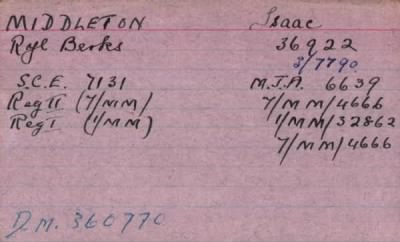 MIDDLETON Isaac
Ryl Berks 36922
3/7790
S.C.E. 7131 M.I.A. 6639
Reg II (7/MM/ 7/MM/4666
Reg I (1/MM) 1/MM/32862
7/MM/4666
D.M. 360770